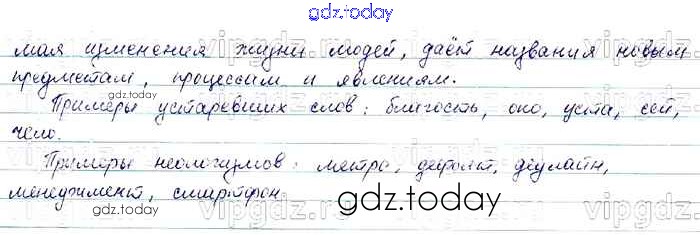 gdz.today
мая изменения жизни людей, даёт названия новым
предметам, процессам и явлениям.
gdz.today
Примеры устаревших слов: благость, око, уста, сей,
чело.
Примеры неологизмов: метро, дефолт, дедлайн,
менеджмент, смартфон.
gdz.today
gdz.today
vipgdz.ru